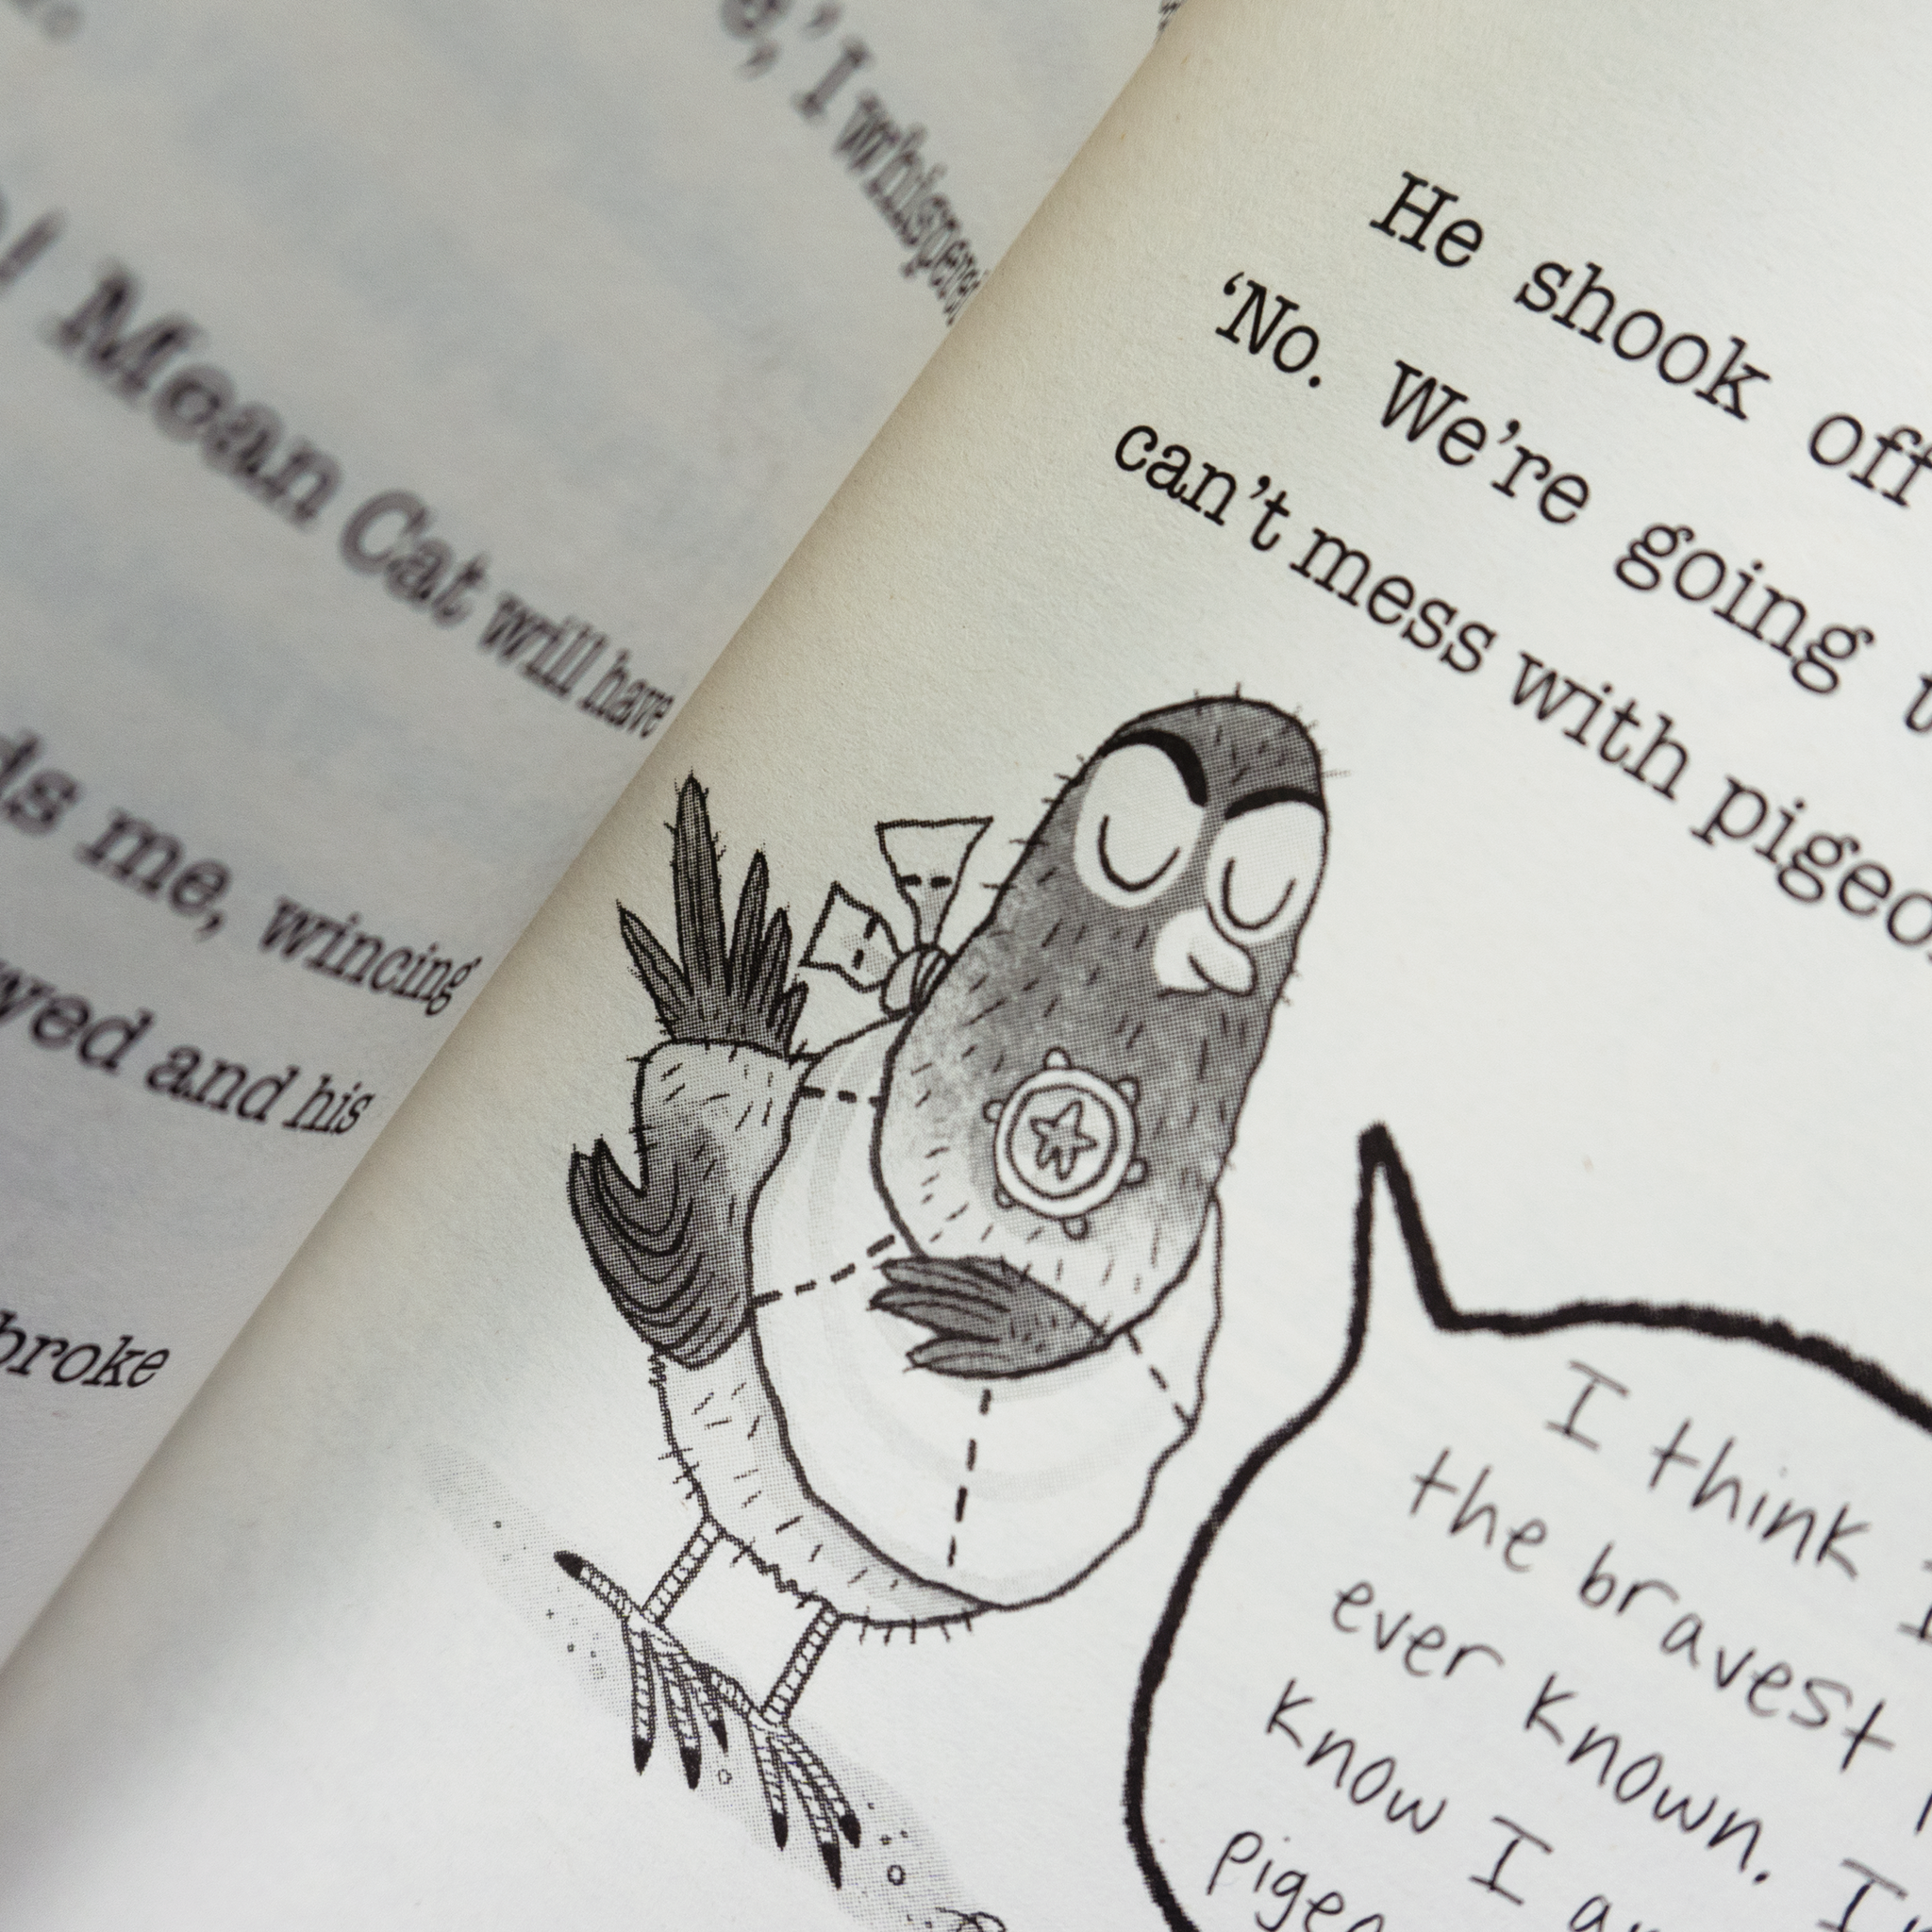 ,' I whisper
! Mean Cat will have
ds me, wincing
wed and his
broke
He shook off
'No. We're going t
can't mess with pigeo
I think I
the bravest
ever known. I
know I a
pigeo